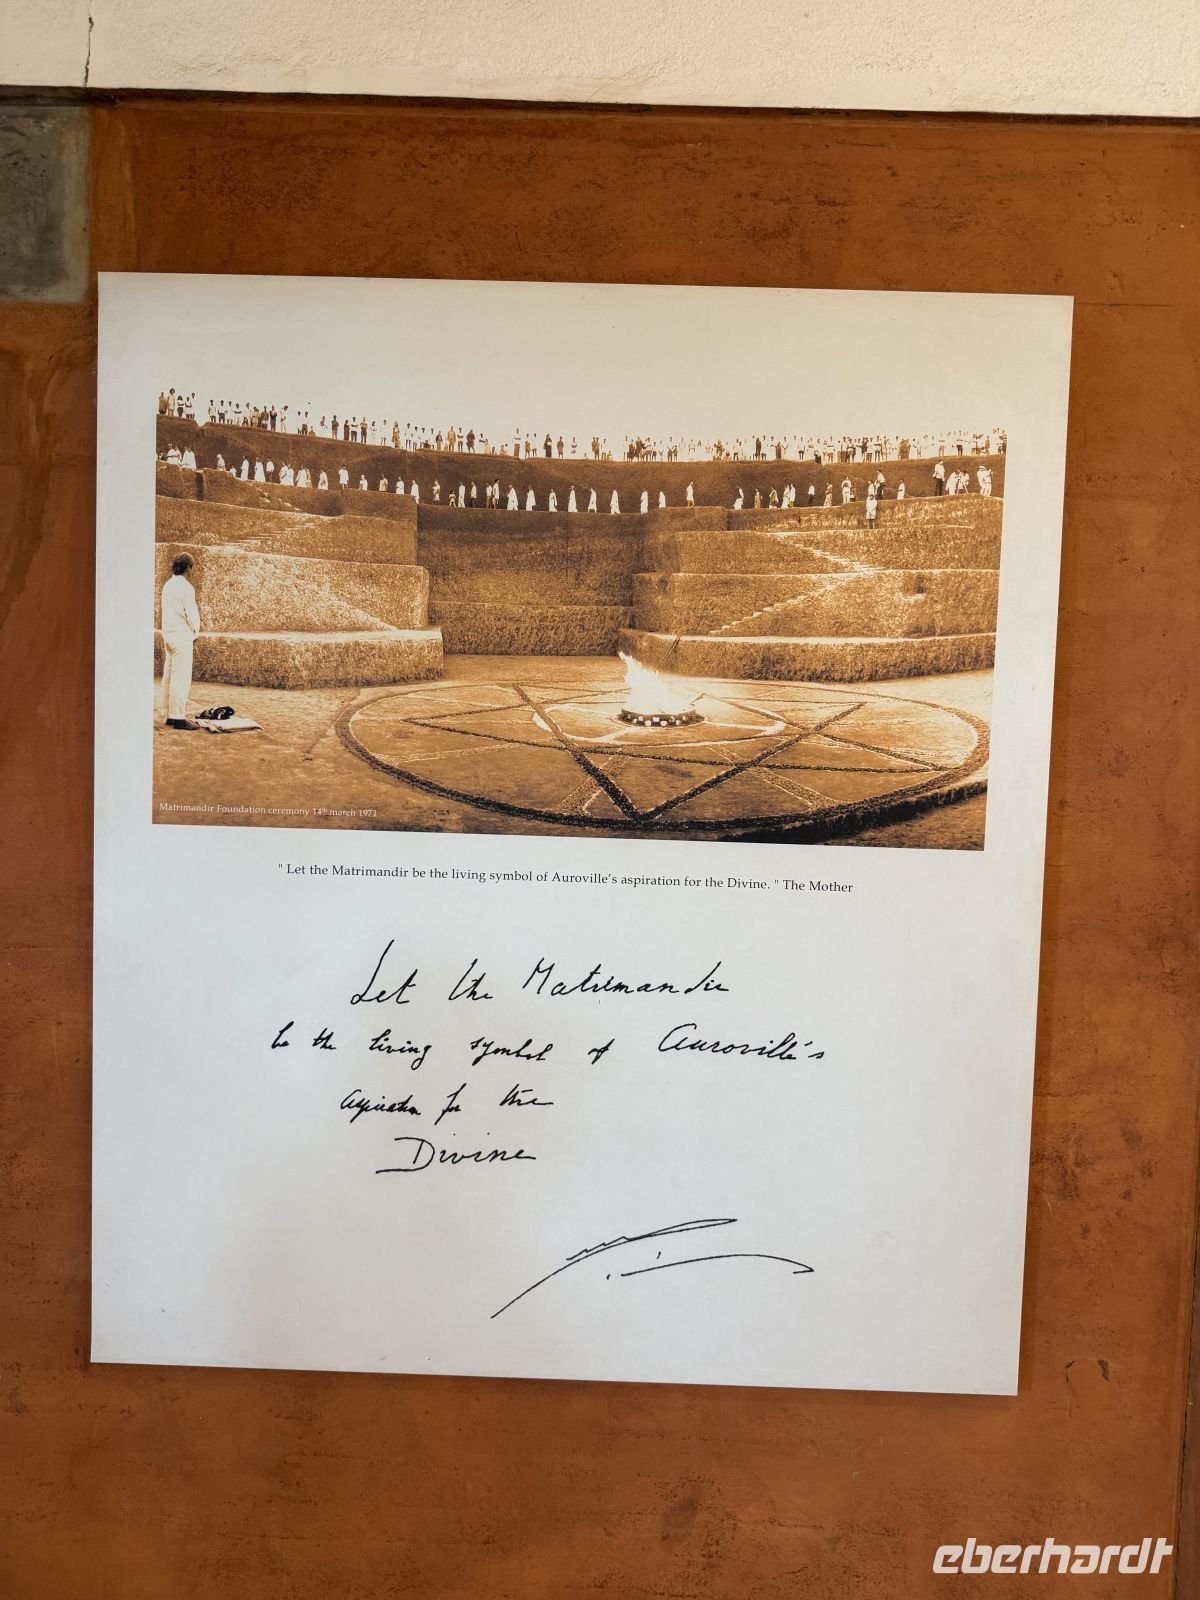 Matrimandir Foundation ceremony 14th march 1971
" Let the Matrimandir be the living symbol of Auroville's aspiration for the Divine. " The Mother
Let the Matrimandir
be the living symbol of Auroville's
aspiration for the
Divine
eberhardt